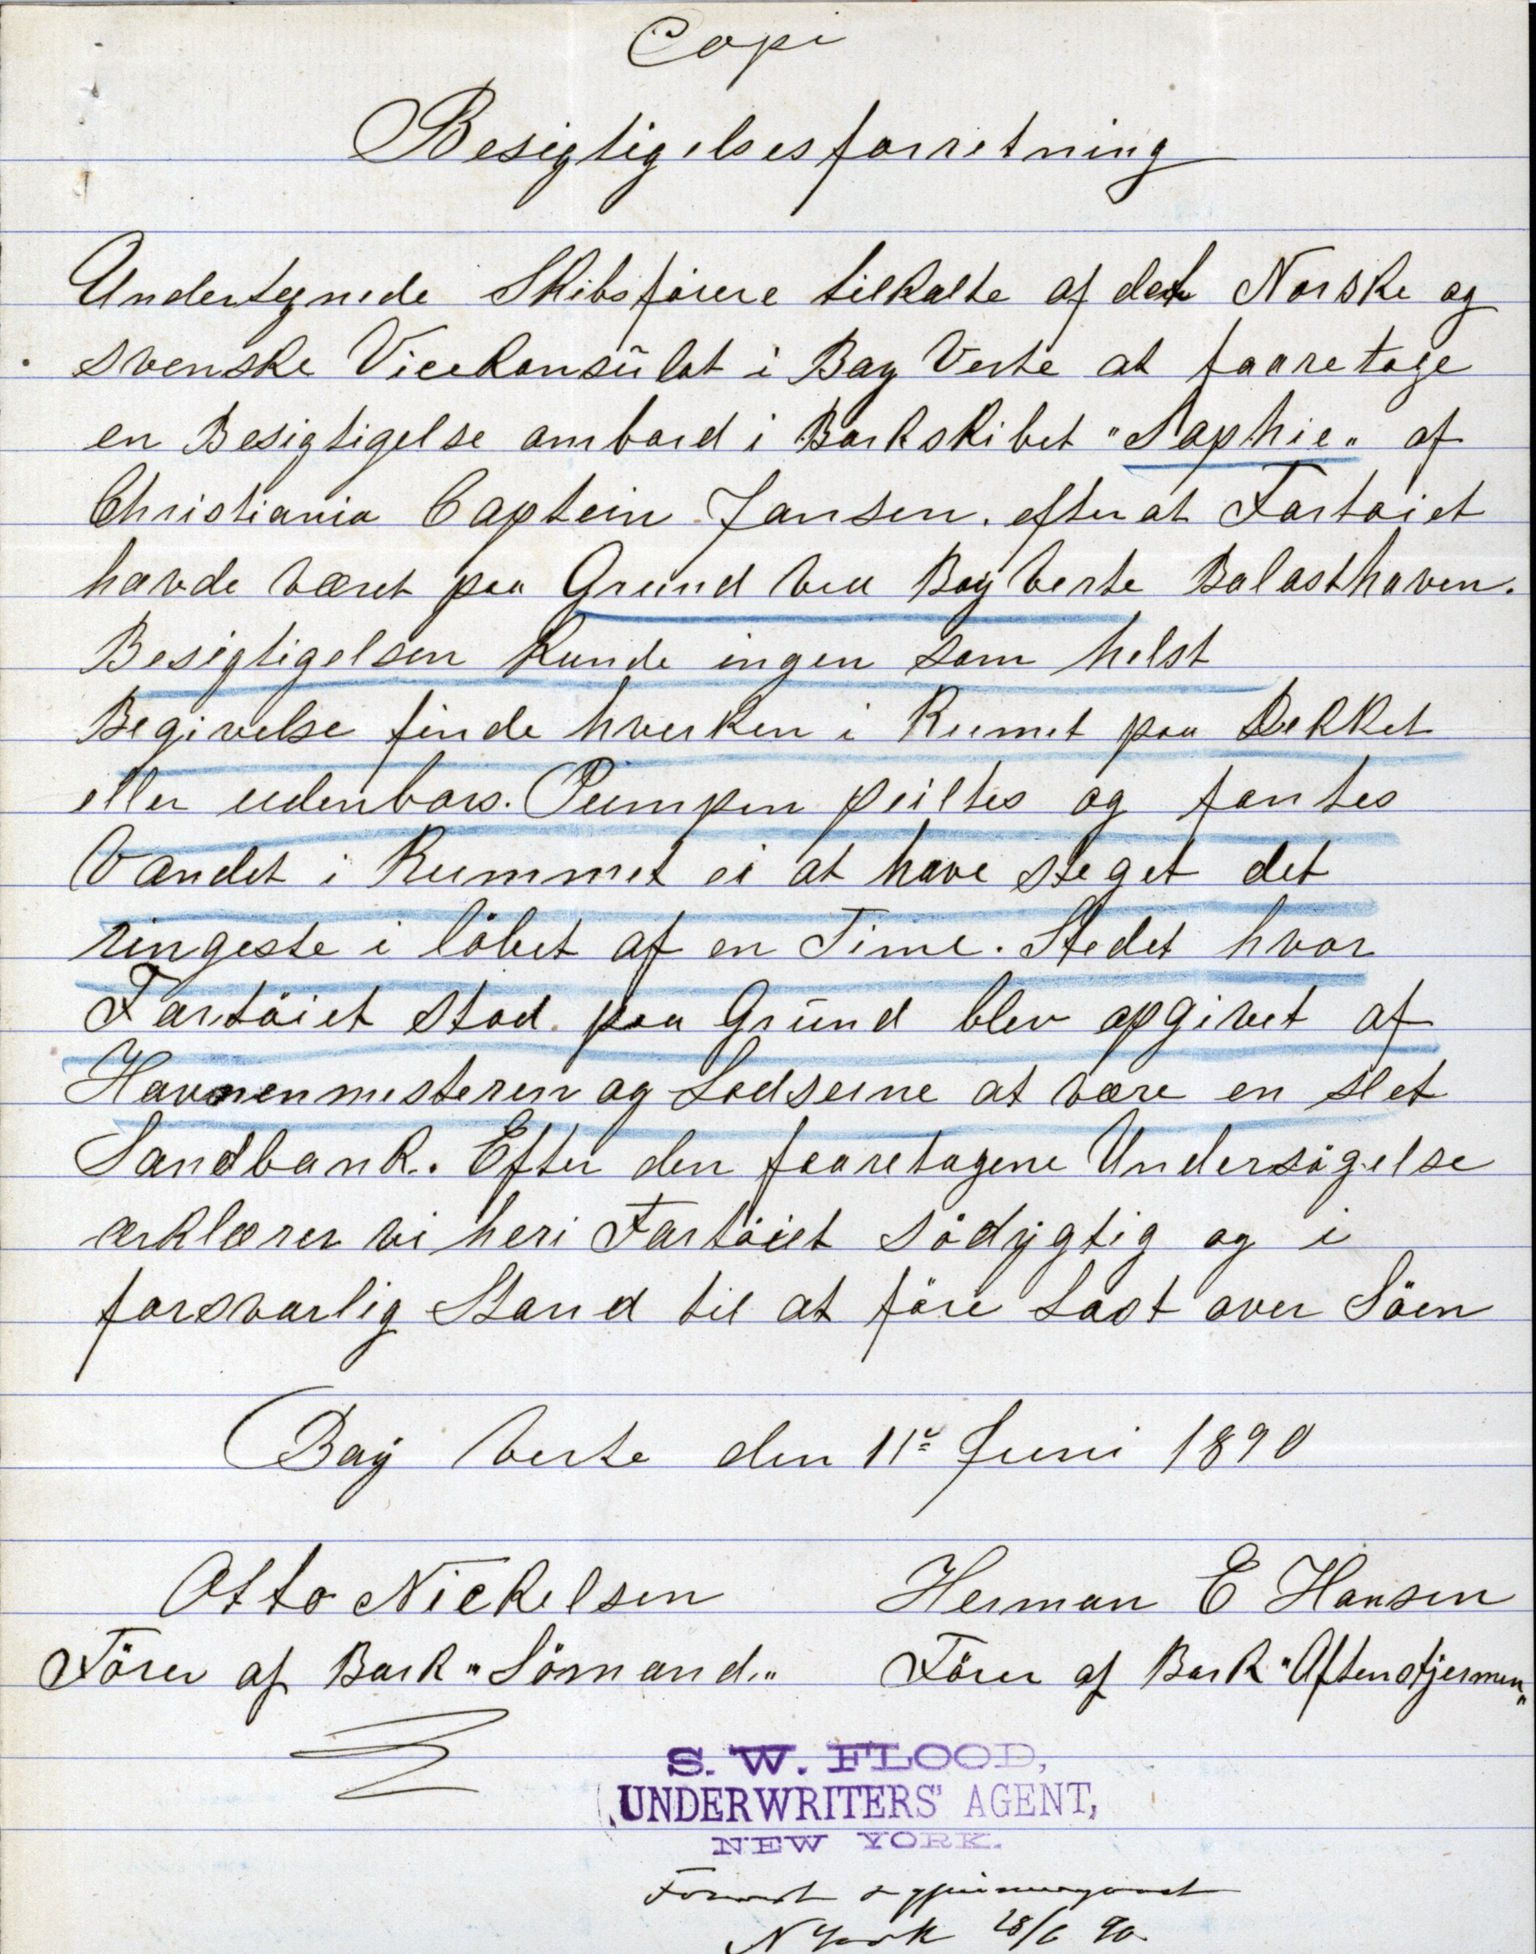 Copi
Besigtigelsesforretning
Undertegnede Skibsförere tilkalte af det Norske og
svenske Vicekonsülat i Bay Verte at faaretage
en Besigtigelse ombord i Barkskibet "Sophie" af
Christiania Captein Jansen. efter at Fartöiet
havde været paa Grund ved Bay Verte Balasthaven.
Besigtigelsen kunde ingen som helst
Begivelse finde hverken i Rumet paa Dekket
eller udenbors. Pumpen peiltes og fantes
Vandet i Rummet ei at have steget det
ringeste i löbet af en Time. Stedet hvor
Fartöiet stod paa Gründ blev opgivet af
Havnenmesteren og Lodserne at være en slet
Sandbank. Efter den faaretagene Undersögelse
ærklærer vi heri Fartöiet södygtig og i
forsvarlig Stand til at före Last over Söen
Bay Verte den 11te Juni 1890
Otto Nickelsen Herman E Hansen
Förer af Bark "Sömand" Förer af Bark "Aftenstjernen"
S. W. FLOOD,
UNDERWRITERS' AGENT,
NEW YORK.
NYork 28/6 90